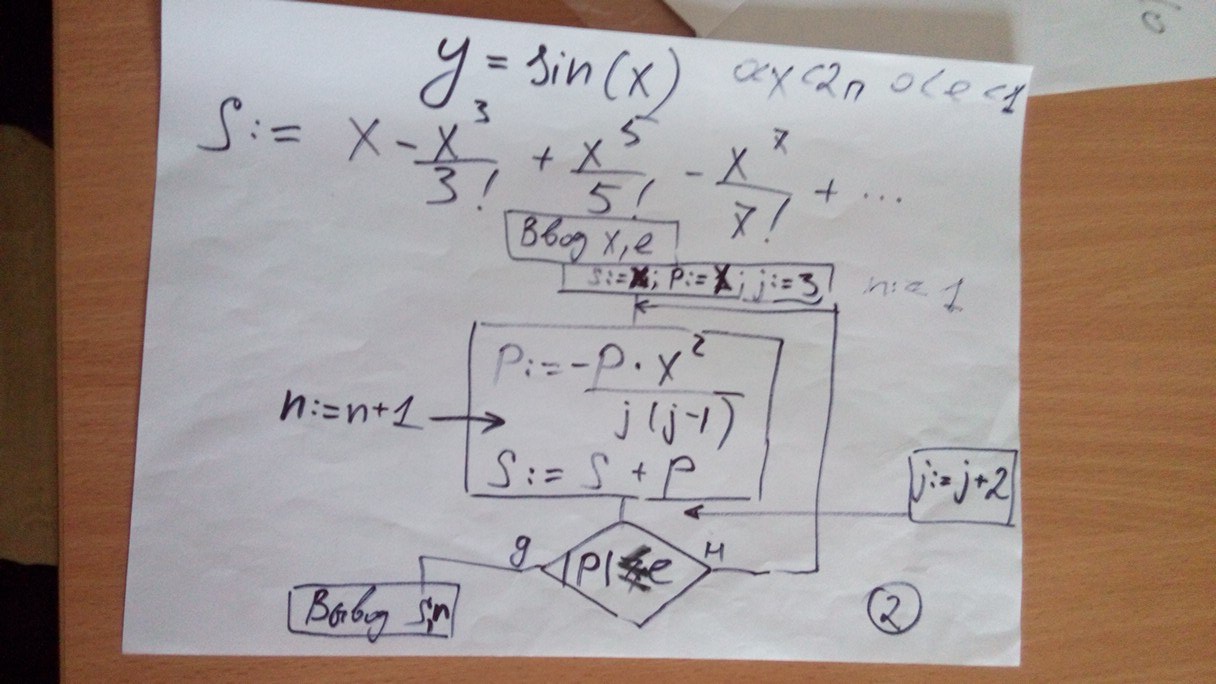 y = sin(x) 0<x<2π 0<e<1
S:= x - x³/3! + x⁵/5! - x⁷/7! + ...
Ввод x, e
S:=x; P:=x; j:=3; n:= 1
P:= -P·x²/j(j-1)
n:=n+1
S:= S + P
j:=j+2
|P|<e
д
н
Вывод S,n
2